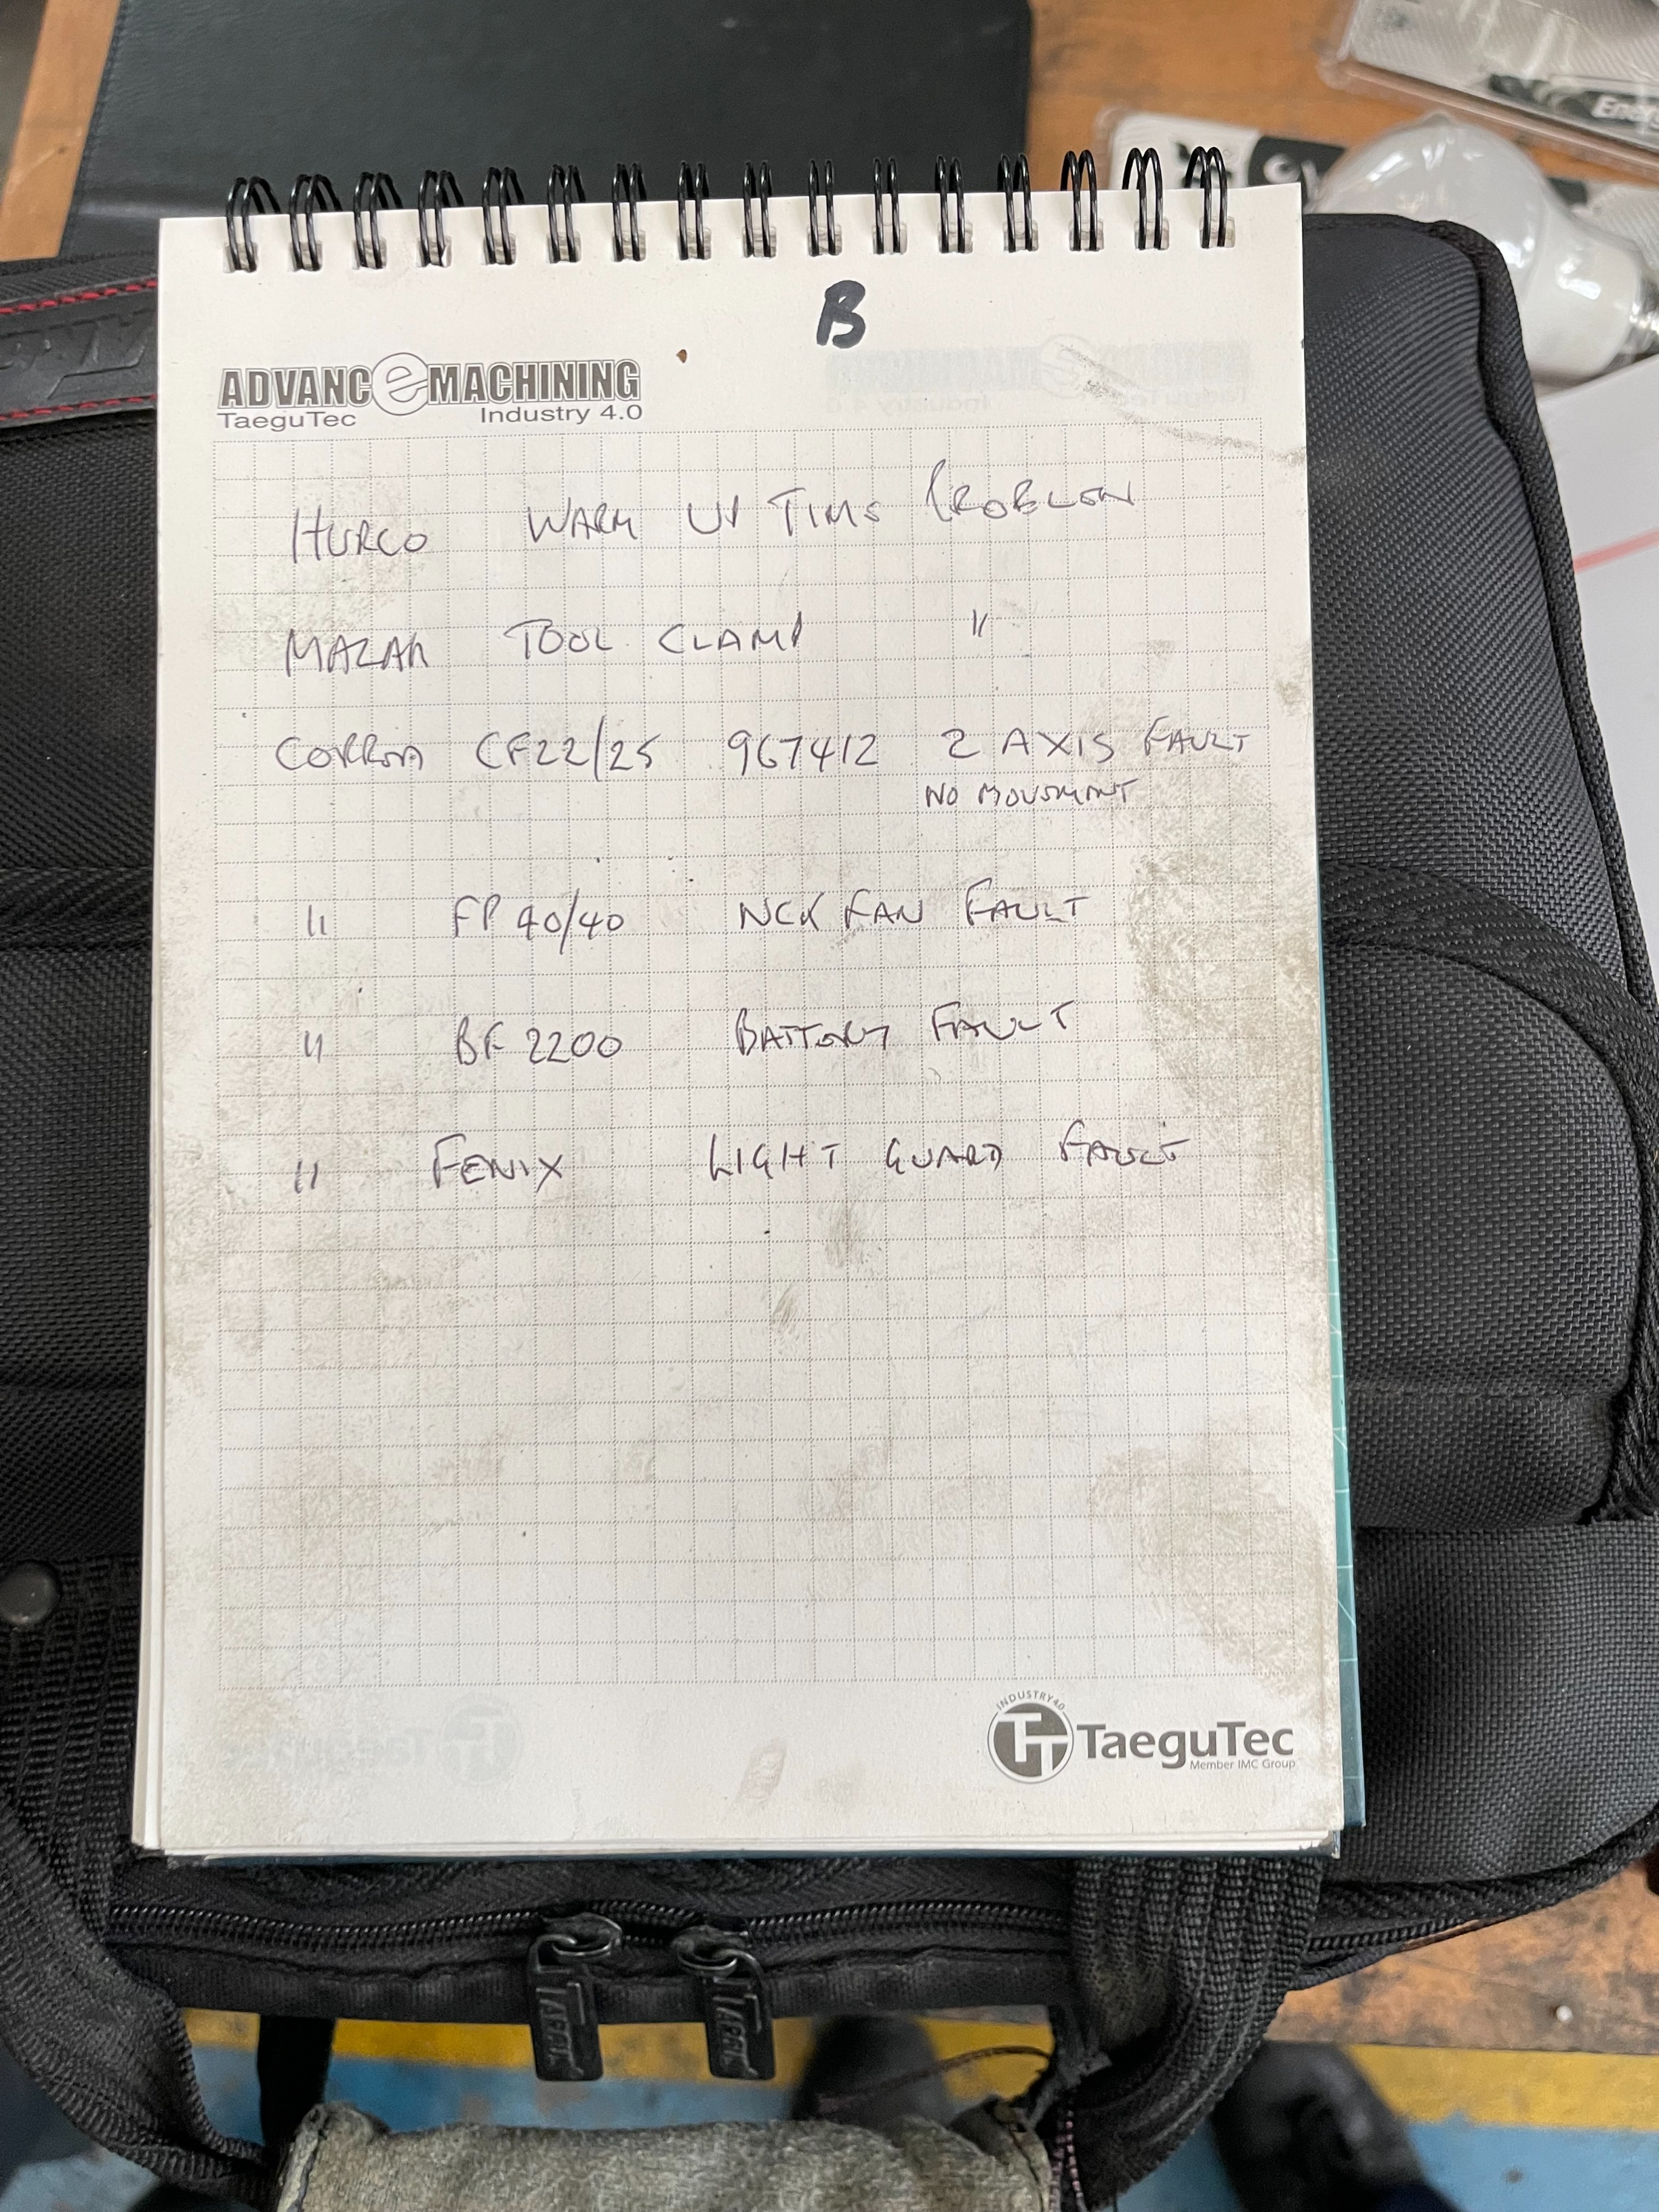 B
ADVANCeMACHINING
TaeguTec Industry 4.0
HURCO WARM UP TIME PROBLEM
MAZAK TOOL CLAMP "
CORREA CF22/25 967412 Z AXIS FAULT
NO MOVEMENT
" FP 40/40 NCK FAN FAULT
" BF 2200 BATTERY FAULT
" FENIX LIGHT GUARD FAULT
INDUSTRY 4.0
TT TaeguTec
Member IMC Group
TARAFUK